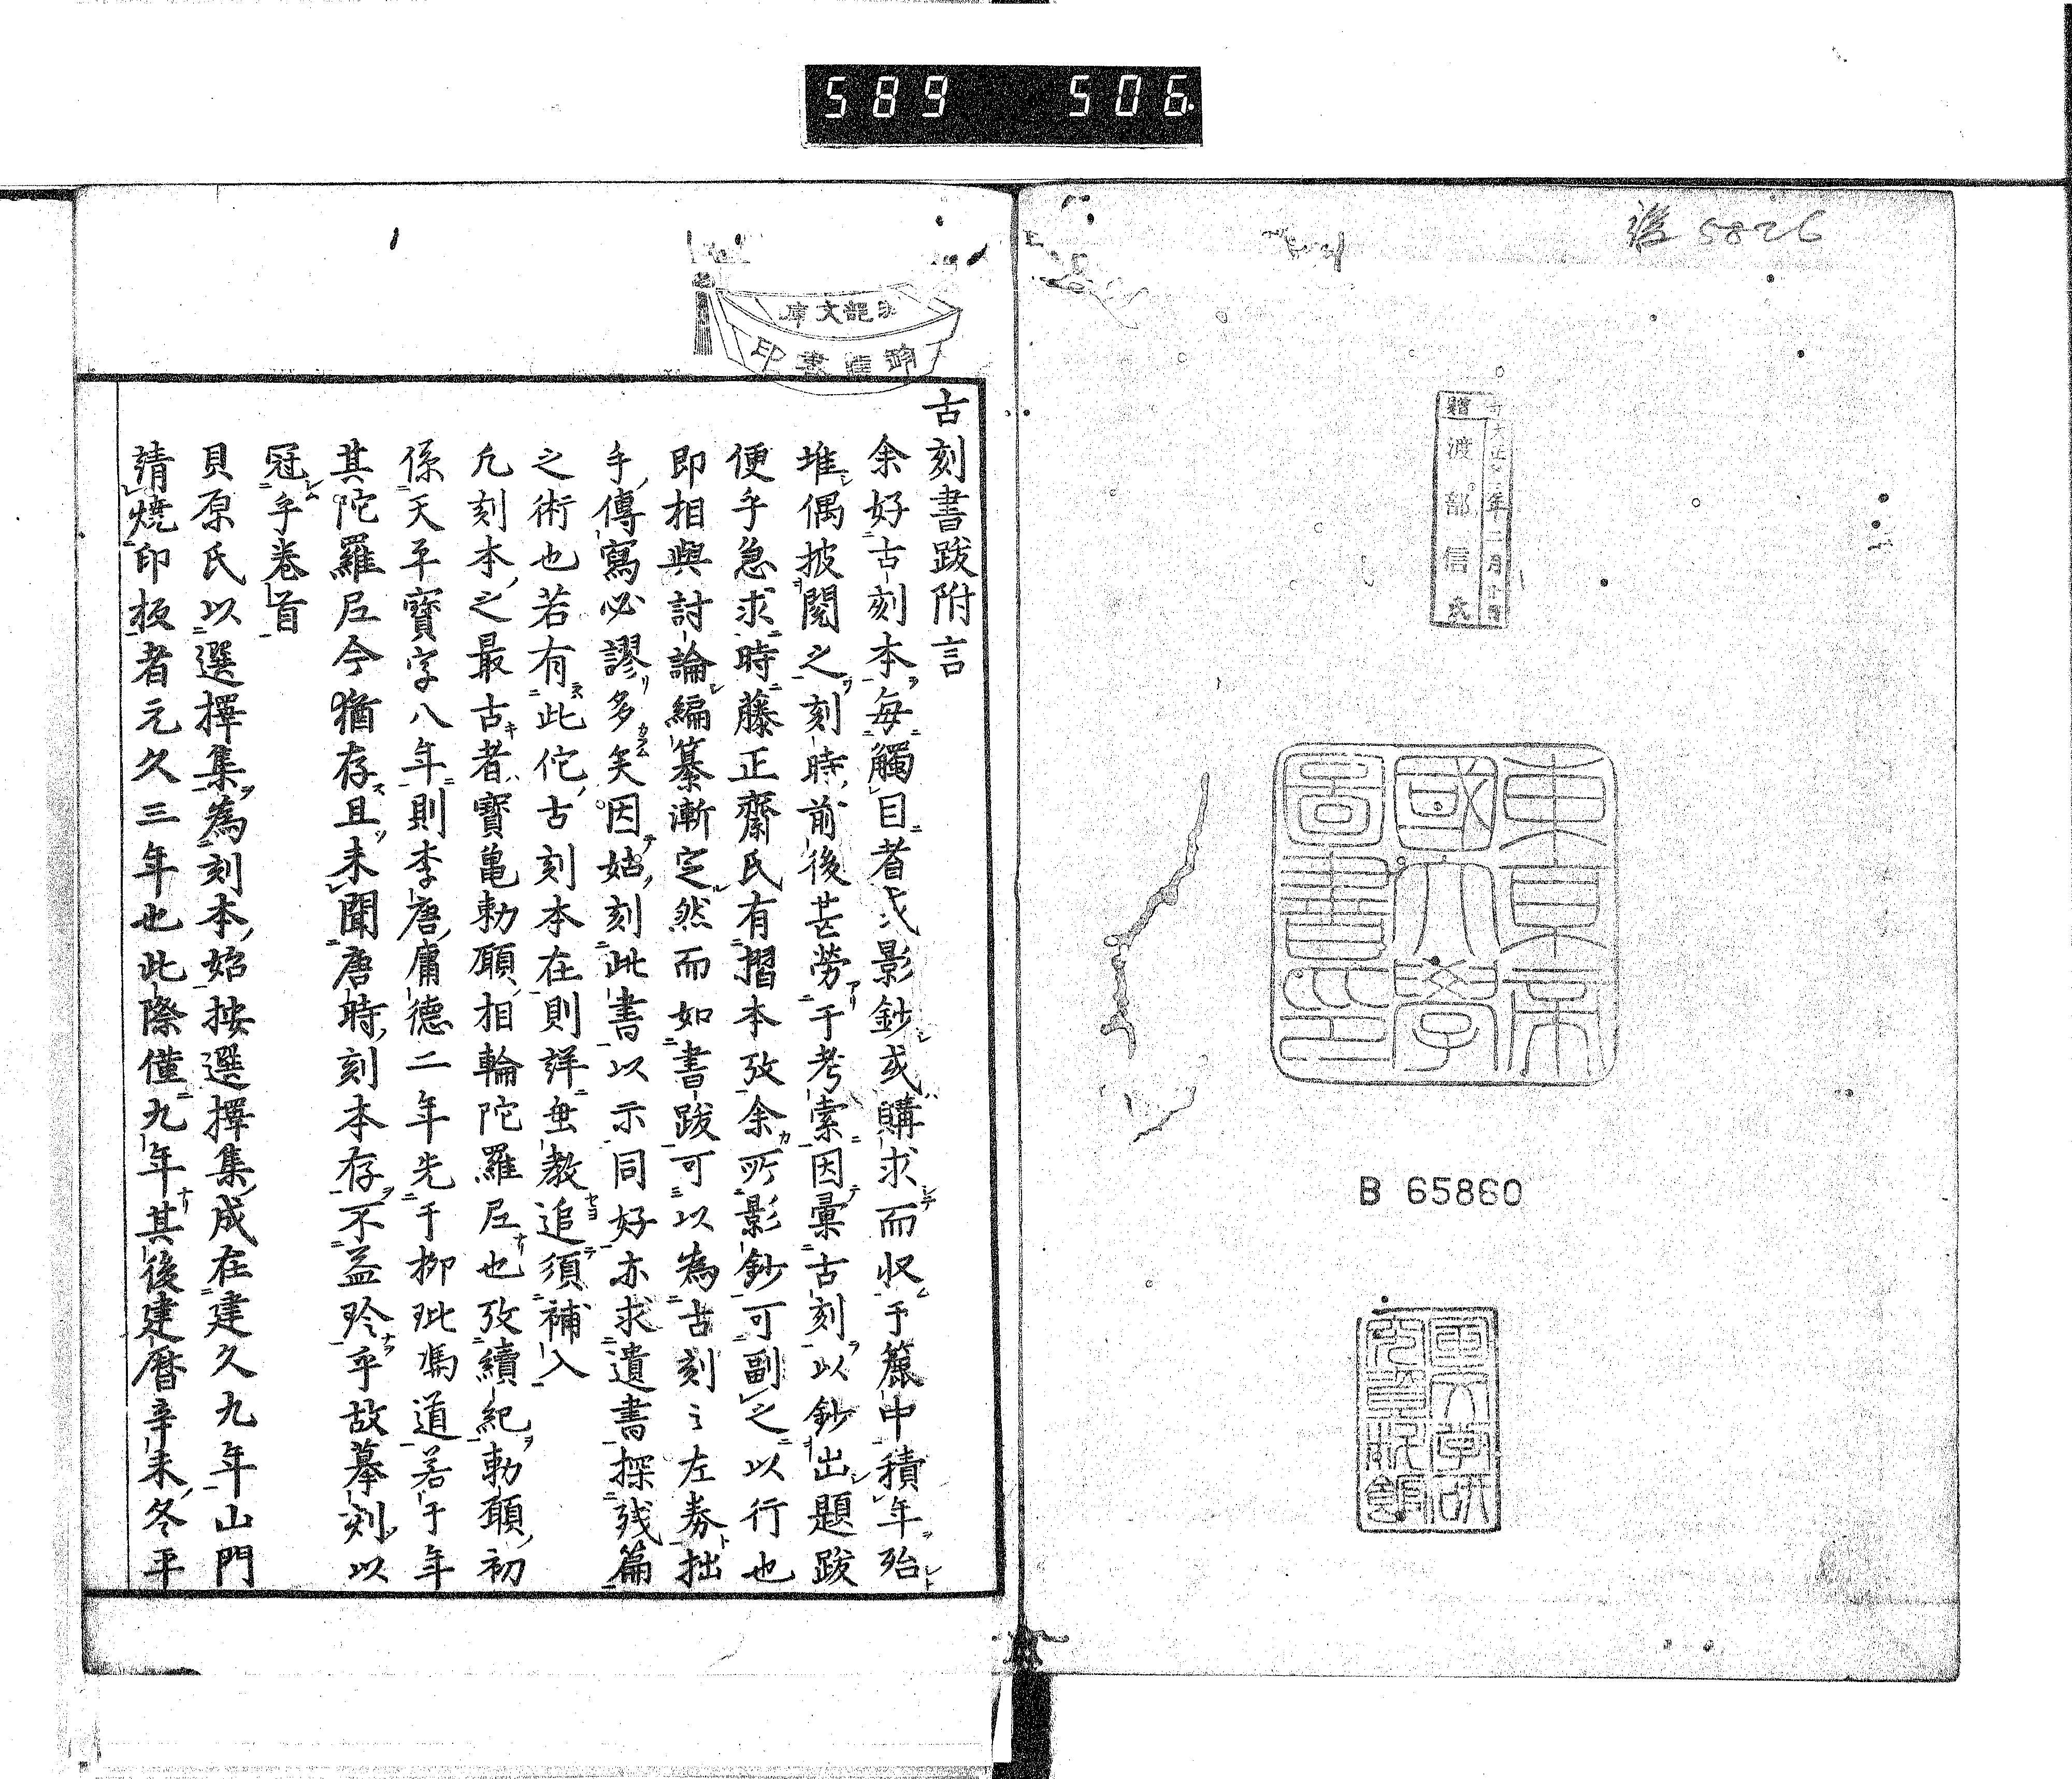 589 506
後 5826
贈
渡部信氏
東京帝
國大學
圖書印
B 65860
文庫
古刻書跋附言
余好古刻本毎觸目者或影鈔或購求而收于簏中積年殆
堆偶披閲之刻時前後苦勞于考索因彙古刻以鈔出題跋
便乎急求時藤正齋氏有摺本攷余所影鈔可副之以行也
即相與討論編纂漸定然而如書跋可以為古刻之左券拙
手傳寫必謬多矣因姑刻此書以示同好亦求遺書探残篇
之術也若有此佗古刻本在則詳垂教追須補入
凢刻本之最古者寳亀勅願相輪陀羅尼也攷續紀勅願初
係天平寳字八年則李唐廣德二年先于栁玭馮道若于年
其陀羅尼今猶存且未聞唐時刻本存不益珍乎故摹刻以
冠乎巻首
貝原氏以選擇集為刻本始按選擇集成在建久九年山門
請燒印板者元久三年也此際僅九年其後建暦辛未冬平